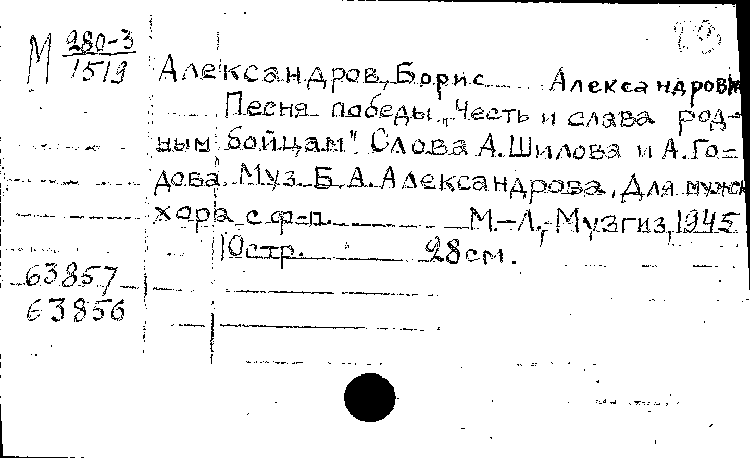 М 280-3
1519
Александров, Борис Александрович
Песня победы „Честь и слава род-
ным бойцам". Слова А. Шилова и А. Го-
дова. Муз. Б. А. Александрова. Для мужск
хора с ф-п. М.-Л., Музгиз, 1945
10стр. 28см.
63857
63856